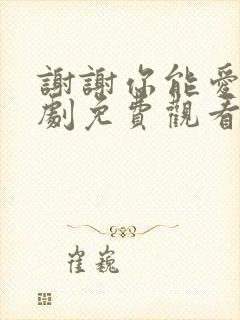 謝謝你能愛
劇免費觀看
崔巍